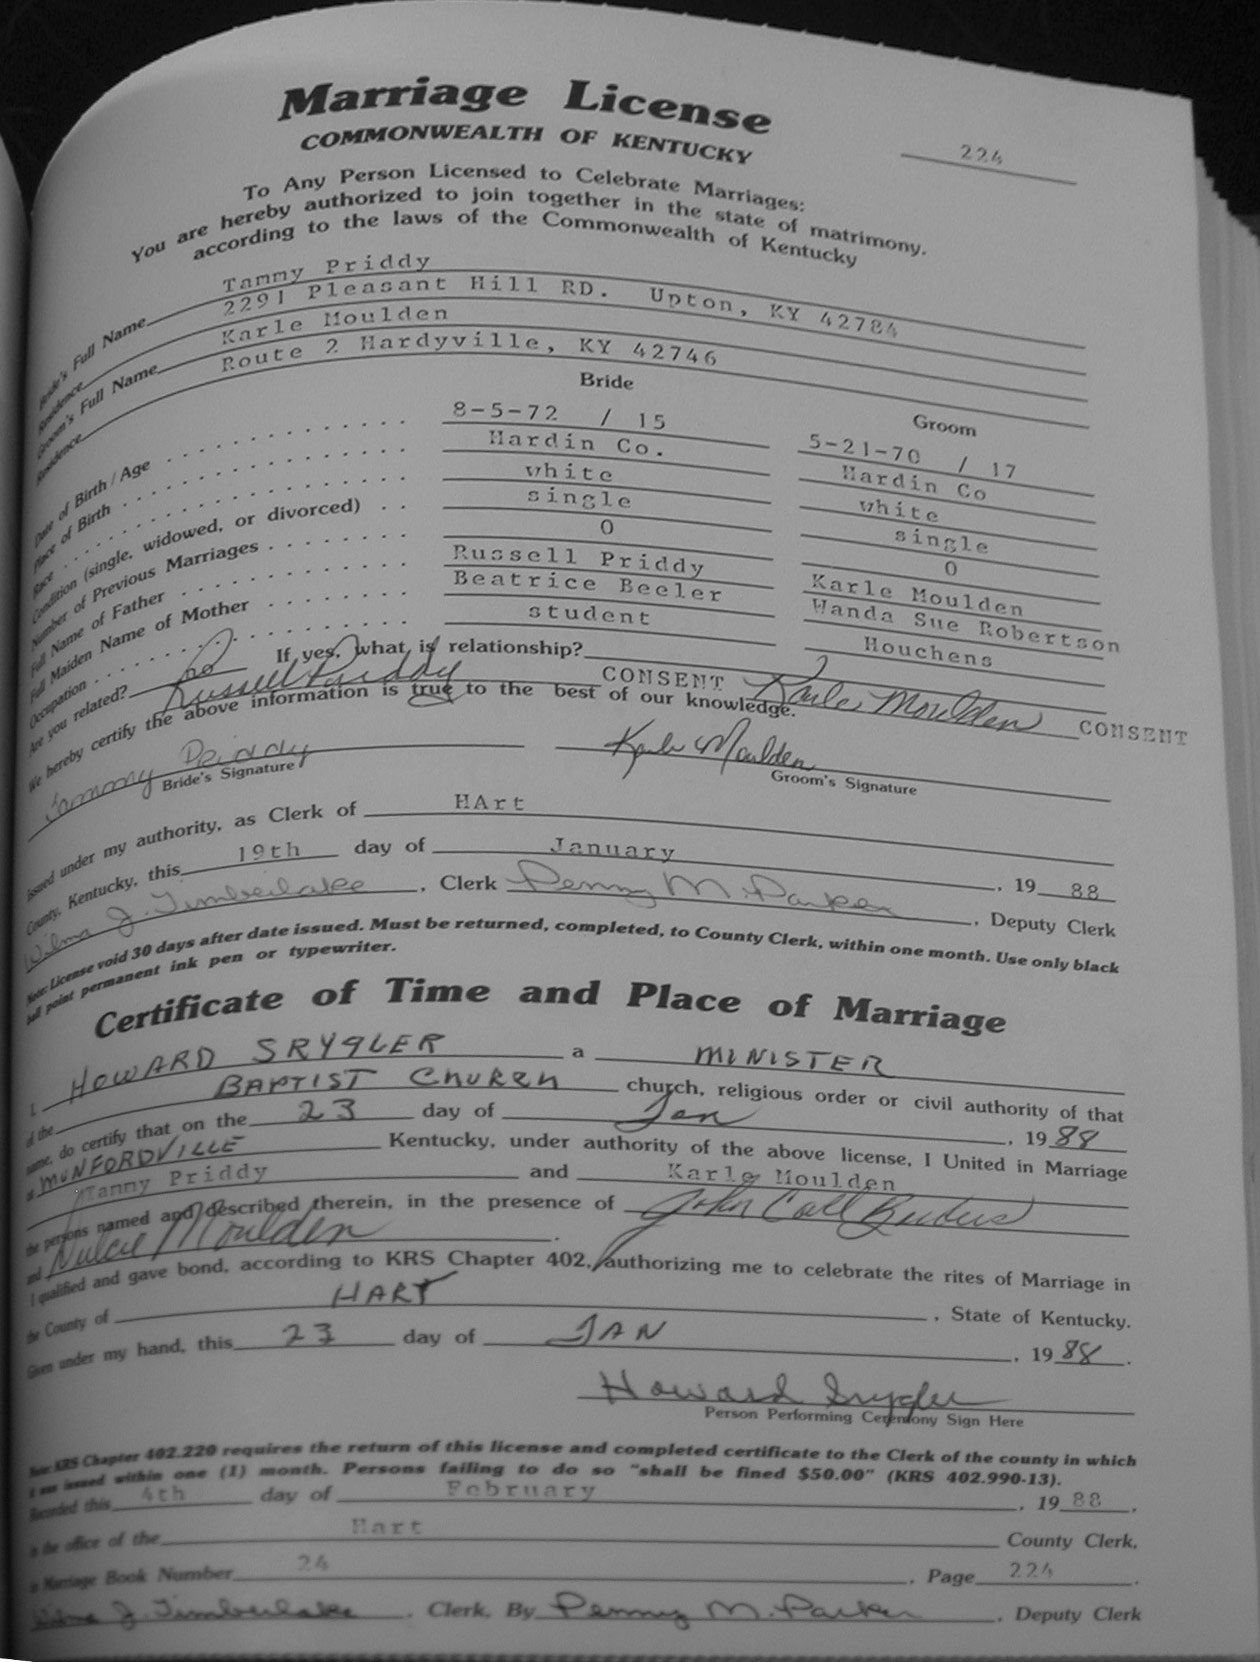 Marriage License
COMMONWEALTH OF KENTUCKY
224
To Any Person Licensed to Celebrate Marriages:
You are hereby authorized to join together in the state of matrimony.
according to the laws of the Commonwealth of Kentucky
Bride's Full Name Tammy Priddy
Residence 2291 Pleasant Hill RD. Upton, KY 42784
Groom's Full Name Karle Moulden
Residence Route 2 Hardyville, KY 42746
Bride Groom
Date of Birth / Age 8-5-72 / 15 5-21-70 / 17
Place of Birth Hardin Co. Hardin Co
Race white white
Condition (single, widowed, or divorced) single single
Number of Previous Marriages 0 0
Full Name of Father Russell Priddy Karle Moulden
Full Maiden Name of Mother Beatrice Beeler Wanda Sue Robertson
Occupation student Houchens
Are you related? no If yes, what is relationship?
Russell Priddy CONSENT Karle Moulden CONSENT
We hereby certify the above information is true to the best of our knowledge.
Tammy Priddy Karle Moulden
Bride's Signature Groom's Signature
Issued under my authority, as Clerk of HArt
County, Kentucky, this 19th day of January, 19 88
Wilma J. Timberlake, Clerk Penny M. Parker, Deputy Clerk
Note: License void 30 days after date issued. Must be returned, completed, to County Clerk, within one month. Use only black
ball point permanent ink pen or typewriter.
Certificate of Time and Place of Marriage
I, HOWARD SRYGLER a MINISTER
of the BAPTIST CHURCH church, religious order or civil authority of that
name, do certify that on the 23 day of Jan, 19 88
at MUNFORDVILLE Kentucky, under authority of the above license, I United in Marriage
Tammy Priddy and Karle Moulden
the persons named and described therein, in the presence of John
and Moulden.
I qualified and gave bond, according to KRS Chapter 402, authorizing me to celebrate the rites of Marriage in
the County of HART, State of Kentucky.
Given under my hand, this 23 day of JAN, 19 88.
Howard Srygler
Person Performing Ceremony Sign Here
Note: KRS Chapter 402.220 requires the return of this license and completed certificate to the Clerk of the county in which
it was issued within one (1) month. Persons failing to do so "shall be fined $50.00" (KRS 402.990-13).
Recorded this 4th day of February, 19 88.
in the office of the Hart County Clerk,
in Marriage Book Number 24, Page 224.
Wilma J. Timberlake, Clerk, By Penny M. Parker, Deputy Clerk